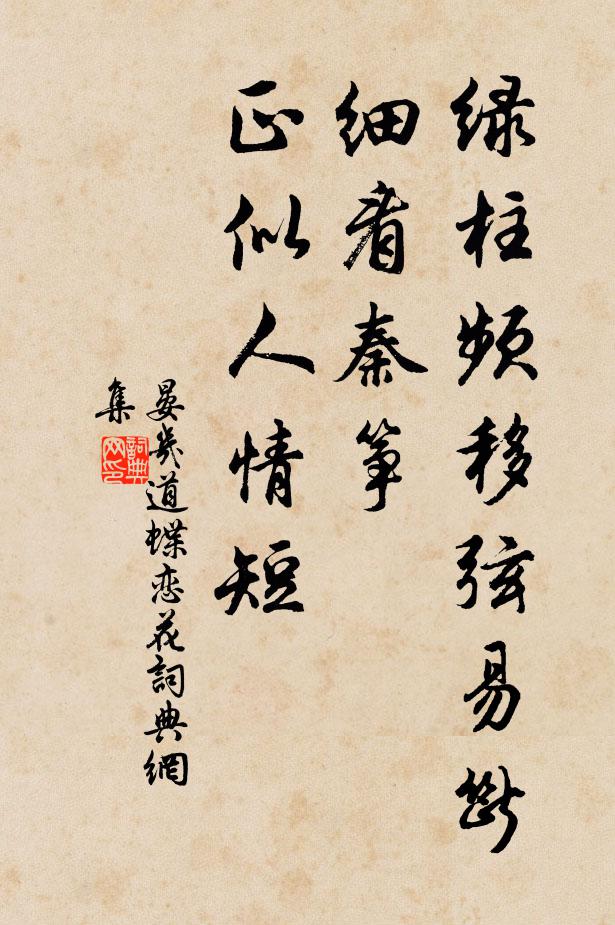 绿柱频移弦易断
细看秦筝
正似人情短
晏几道蝶恋花詞典網
集
詞典
网印